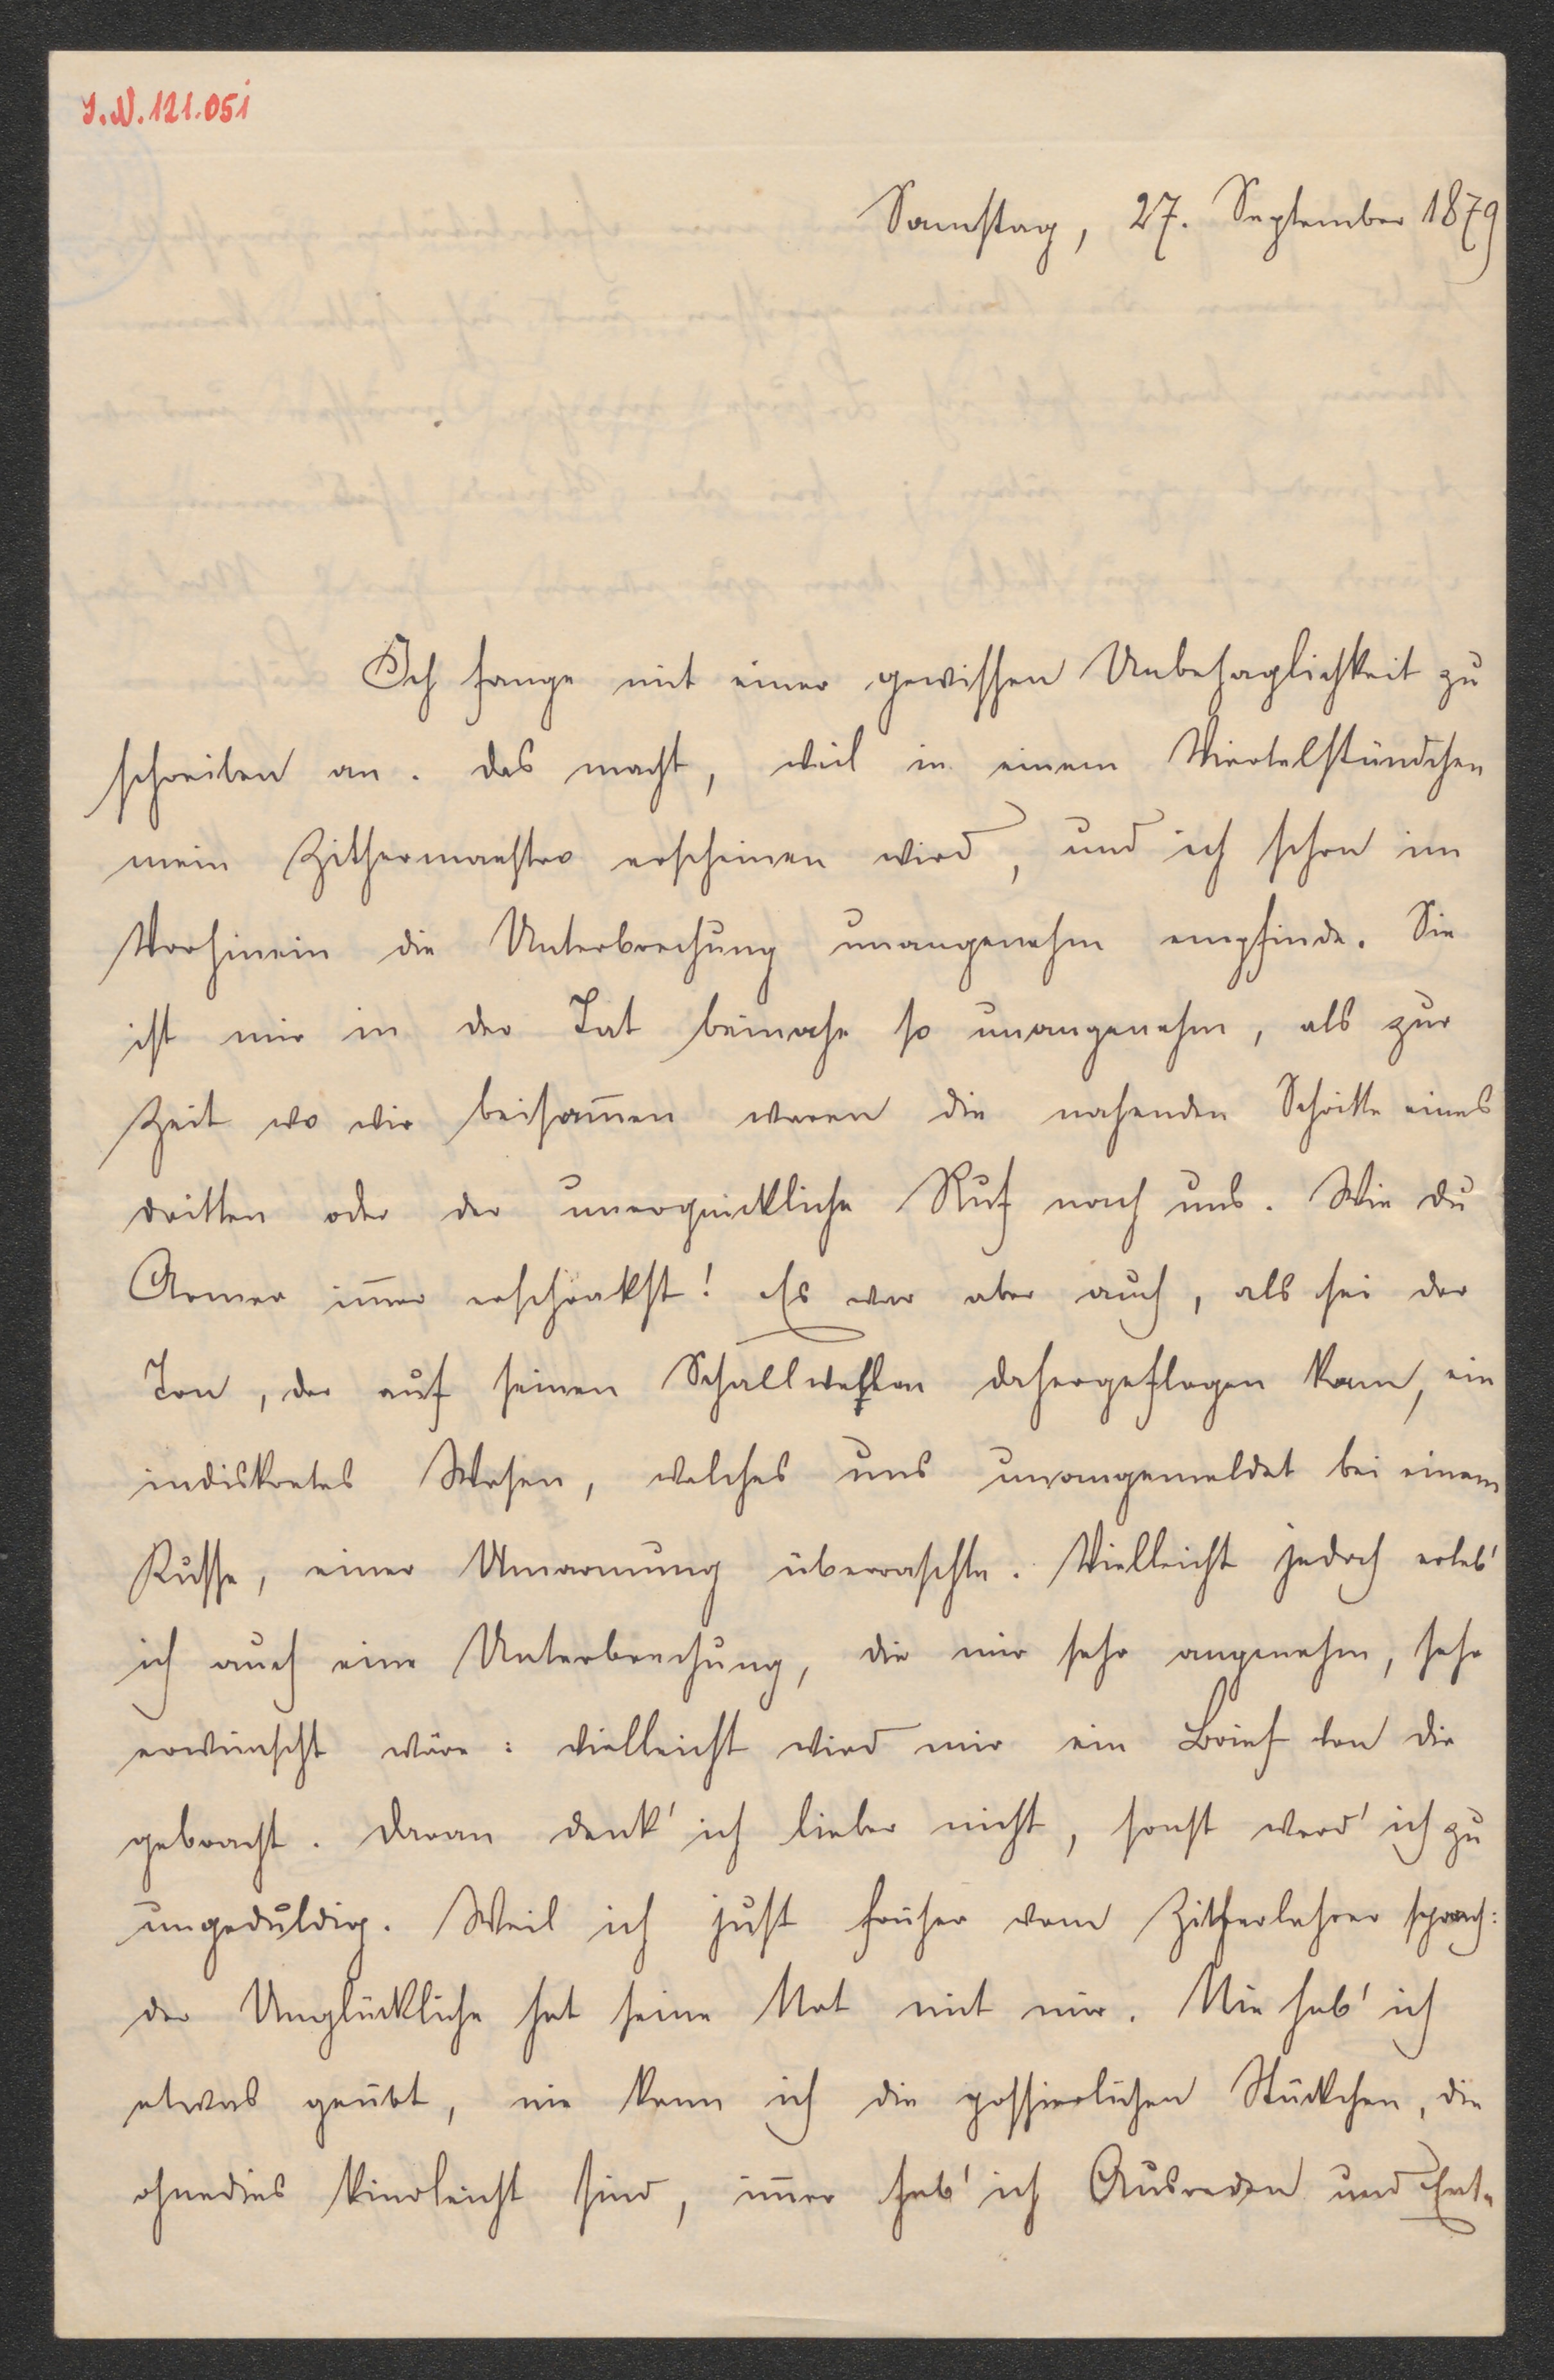 I.N. 121.051
Samstag, 27. September 1879
Ich fange mit einer gewissen Unbehaglichkeit zu
schreiben an. Das macht, weil in einem Viertelstündchen
mein Zithermaestro erscheinen wird, und ich schon im
Vorhinein die Unterbrechung unangenehm empfinde. Sie
ist mir in der Tat beinahe so unangenehm, als zur
Zeit wo wir beisam̄en waren die nahenden Schritte eines
dritten oder der unerquickliche Ruf nach uns. Wie Du
Armer im̄er erschrakst! Es war aber auch, als sei der
Ton, der auf seinen Schallwellen dahergeflogen kam, ein
indiskretes Wesen, welches uns unangemeldet bei einem
Kusse, einer Umarmung überraschte. Vielleicht jedoch erleb'
ich auch eine Unterbrechung, die mir sehr angenehm, sehr
erwünscht wäre: vielleicht wird mir ein Brief von dir
gebracht. Daran denk' ich lieber nicht, sonst werd' ich zu
ungeduldig. Weil ich just früher vom Zitherlehrer sprach:
der Unglückliche hat seine Not mit mir. Nie hab' ich
etwas geübt, nie kann ich die possierlichen Stückchen, die
ohnedies kinderleicht sind, im̄er hab' ich Ausreden und Ent-